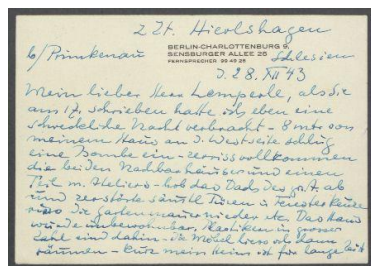 z. Zt. Hierlshagen
b/Primkenau
BERLIN-CHARLOTTENBURG 9,
SENSBURGER ALLEE 26
FERNSPRECHER 99 43 26
Schlesien
d. 28. XII 43
Mein lieber Herr Lemperle, als Sie
am 17. schrieben hatte ich eben eine
schreckliche Nacht verbracht - 8 mtr von
meinem Haus an d. Westseite schlug
eine Bombe ein - zerriss vollkommen
die beiden Nachbarhäuser und einen
Teil m. Ateliers - hob das Dach des
und zerstörte sämtl. Türen u. Fenster
riss die Gartenmauer nieder etc. Das Haus
wurde unbewohnbar, Plastiken in grosser
Zahl sind dahin - die Möbel liess ich dann
räumen - kurz mein Heim ist für lange Zeit